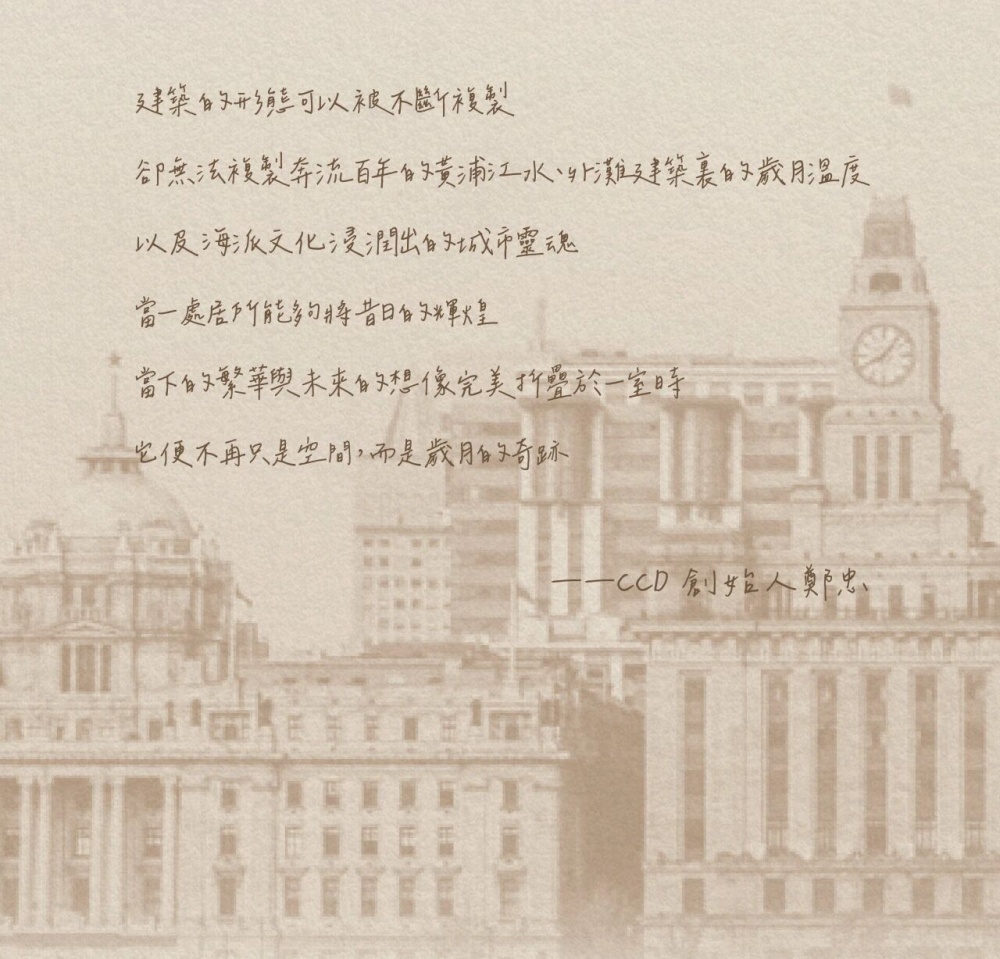 建築的形態可以被不斷複製
卻無法複製奔流百年的黃浦江水、外灘建築裏的歲月溫度
以及海派文化浸潤出的城市靈魂
當一處居所能夠將昔日的輝煌
當下的繁華與未來的想像完美折疊於一室時
它便不再只是空間，而是歲月的奇跡
——CCD 創始人鄭忠